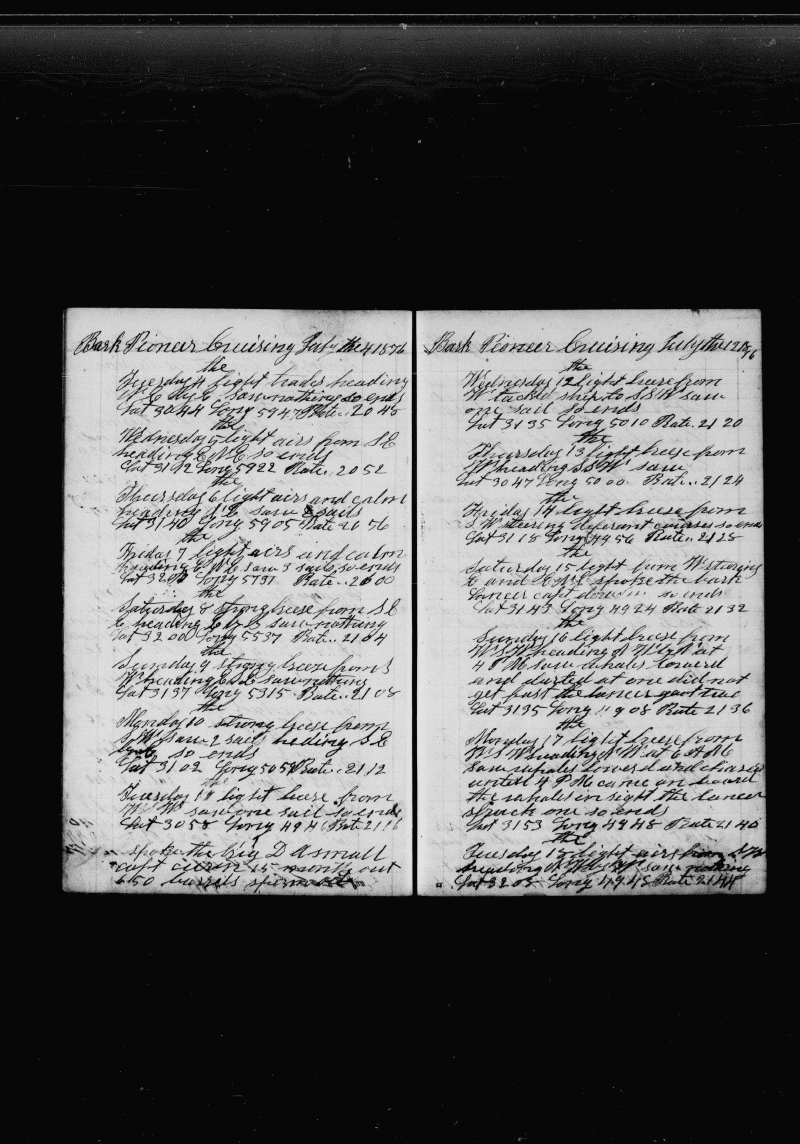 Bark Pioneer Cruising July the 4 1876
the
Tuesday 4 light trades heading
N E by E saw nothing so ends
Lat 3044 Long 5947 Rate.. 2048
the
Wednesday 5 light airs from S E
heading E N E so ends
Lat 3112 Long 5922 Rate.. 2052
the
Thursday 6 light airs and calm
heading S E saw 2 sails
Lat 3140 Long 5905 Rate 20 56
the
Friday 7 light airs and calm
heading saw 3 sails so ends
Long 5791 Rate.. 2000
the
Saturday 8 strong breese from S E
E heading E by S saw nothing
Lat 32 00 Long 5537 Rate.. 2104
the
Sunday 9 strong breese from S
W heading saw nothing
Lat 3137 Long 5315 Rate.. 2108
the
Monday 10 strong breese from
S W saw 2 sail heding S E
so ends
Lat 3102 Long 505 Rate.. 2112
the
Tuesday 11 light breese from
W saw one sail so ends
Lat 3058 Long 494 Rate 2116
spoke the brig D A small
capt 15 month out
650 barrels sperm oil
Bark Pioneer Cruising July the 12 1876
the
Wednesday 12 light breese from
W tacked ship to S S W saw
one sail so ends
Lat 3135 Long 5010 Rate. 2120
the
Thursday 13 light breese from
W heading S S W saw
Lat 3047 Long 5000 Rate.. 2124
the
Friday 14 light breese from
S W steering deferant courses so ends
Lat 3118 Long 4956 Rate.. 2128
the
Saturday 15 light from W stering
E and E N E spoke the bark
Lancer capt so ends
Lat 3143 Long 4924 Rate 2132
the
Sunday 16 light breese from
W S W heading N W by N at
4 P M saw whales lowerd
and darted at one did not
get fast the lancer got true
Lat 3135 Long 4908 Rate 2136
the
Monday 17 light breese from
W S W heading N W at 6 A M
saw whales lowerd and chased
untell 4 P M came on board
the whales in sight the lancer
struck one so ends
Lat 3153 Long 4948 Rate 2140
the
Tuesday 18 light airs from S W
heading saw nothing
Lat 3205 Long 4945 Rate 2144